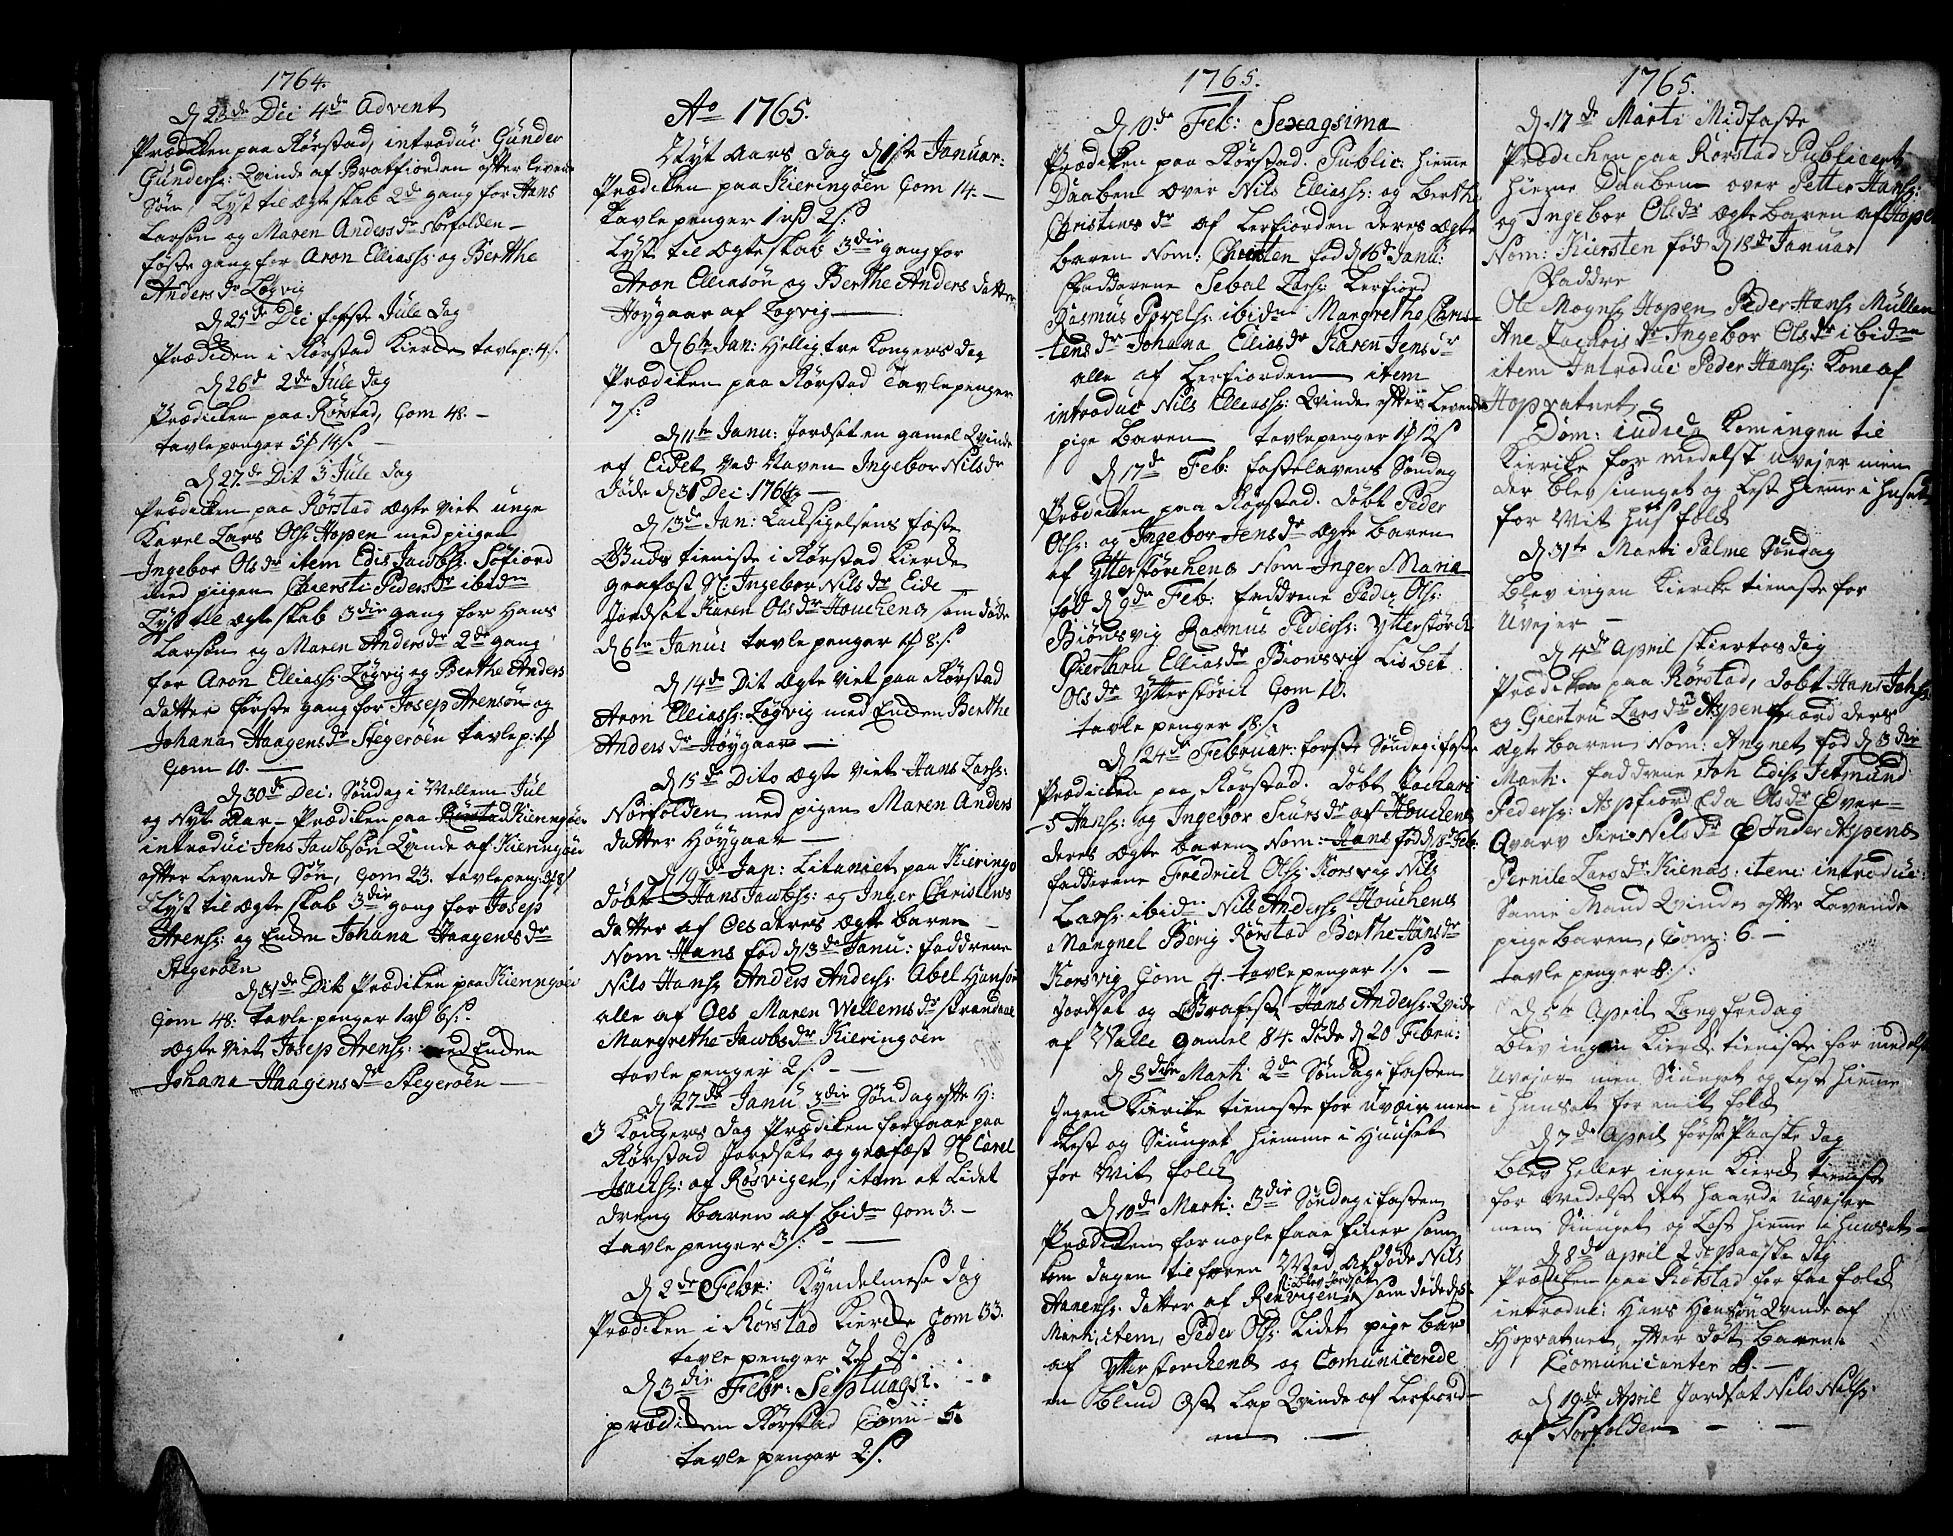 1764.
D 23de Dec 4de Advent
Prædiken paa Rørstad, introduc Gunder
Gunders: Qvinde af Bratfiorden efter levende
Søn, Lyst til ægteskab 2de gang for Hans
Larsøn og Maren Andersdr Norfolden –
føste gang for Aron Elliass: og Berthe
Andersdr Løgvig
D 25de Dec første Jule Dag
Prædiken i Rørstad Kircke tavlep: 4 s.
D 26de 2de Jule Dag
Prædiken paa Rørstad, Com 48. –
tavle penger 5 14 s. –
D 27de Dit 3 Jule Dag
Prædicken paa Rørstad ægte viet unge
Karel Lars Ols: Hopen med piigen
Ingebor Olsdr item Edis Jacobs: Søfiord
med piigen Chiersti Pedersdr ibidm
Lyst til ægte skab 3die gang for Hans
Larsøn og Maren Andersdr 2de gang
for Aron Elliass: Løgvig og Berthe Anders
datter første gang for Josep Arensøn og
Johana Haagensdr Stegerøen tavlep:
Com 10. –
D 30de Dec: Søndag i Mellem Jul
og Nyt Aar – Prædiken paa Kieringøe
introduc Jens Jacobsøn Qvinde af Kieringøen
efter Levende Søn, Com 23. tavlepeng:
Lyst til ægte skab 3die gang for Josep
Arens: og Enden Johana Haagensdr
Stegerøen
D 31de Dit Prædiken paa Kieringøen
Com 48. tavle penger 1 6 s.
ægte viet Josep Arens: med Enden
Johana Haagensdr Stegerøen –
Ao 1765.
Nyt Aars Dag D 1ste Januar:
Prædiken paa Kieringøen Com 14. –
tavle penger 1 2 s:
Lyst til ægte skab 3die gang for
Aron Elliasøn og Berthe Anders datter
Høygaar af Løgvig
D 6te Jan: Hellig tre Kongers Dag
Prædiken paa Rørstad Tavle penger
7 s:
D 11te Janu: Jordsat en gamel Qvinde
af Eidet ved Naven Ingebor Nilsdr
døde D 31 Dec 1764 –
D 13de Jan: fæste
Guds tieniste i Rørstad Kircke
grafæst N: Ingebor Nilsdr Eide –
Jordsat Karen Olsdr Houchenæs som døde
D 6te Janus tavle penger 8 s.
D 14de Dit ægte viet paa Rørstad
Aron Elliass: Løgvig med Enden Berthe
Andersdr Høygaar –
D 15de Dito ægte viet Hans Lars:
Norfolden med pigen Maren Anders
datter Høygaar –
D 19de Jan: Litaniet paa Kieringø
døbt Hans Jacobs: og Inger Christens
datter af Oes deres ægte baren
Nom Hans fød D 13de Janu: faddrene
Nils Hans: Anders Anders: Abel Hansdr
alle af Oes Maren Vellemsdr Strandaae
Margrethe Jacobsdr Kieringøen
tavle penger 2 s. –
D 27de Janu 3die Søndag efter H:
3 Kongers Dag Prædiken for faar paa
Rørstad Jordsat og grafæst N: Carel
Isachs: af Røsvigen, item et Lidet
dreng baren af bidm Com 3. –
tavle penger 3 s: –
D 2de Febr: Kyndelmesse Dag
Prædiken i Rørstad Kircke Com 33.
tavle penger 2 2 s.
D 3die Febr: Septuagsi.
prædiken Rørstad Comu 5.
tavle penger 2 s.
1765.
D 10de Feb: Sexagsima
Prædiken paa Rørstad. Public: Hieme
Daaben over Nils Elliass: og Berthe
Christensdr af Lerfiorden deres ægte
baren Nom: Christen fød D 16de Janu:
Faddrene Sebal Lars: Lerfiord
Rasmus Povels: ibidm Margrethe Chris-
tensdr Johana Eliasdr Karen Jensdr
alle af Lerfiorden item
introduc Nils Elliass: Qvinde efter Levende
pige baren tavlepenger 12 s
D 17de Feb: fastelavens Søndag
Prædiken paa Rørstad. døbt Peder
Ols: og Ingebor Jensdr ægte baren
af Ytterstørchenæs Nom Inger Maria
fød D 9de Feb: faddrene Peder Ols:
Biørnsvig Rasmus Peders: Ytterstørch
Gierthru Elliasdr Biørnsvig Lisbet
Olsdr Ytterstørch Com 10.
tavle penger 18 s.
D 24de Februar: første Søndag i faste
Prædiken paa Rørstad. døbt Zachari-
s Hans: og Ingebor Siursdr af Houchenæs
deres ægte baren Nom: Hans fød D 18de Feb:
fadderene Fredrich Ols: Korsvig Nils
Lars: ibidm Nils Anders: Houchenæs
Mangnel Berig Rørstad Berthe Hansdr
Korsvig Com 4. tavle penger 1 s. –
Jordsat og Grafest Hans Anders: Qvinde
af Valle gamel 84. døde D 20 Febru:
D 3die Marti 2de Søndag i fasten
Ingen Kircke tieneste for uveir men
Lest og Siunget hiemme i Huuset
for Mit folck
D 10de Marti: 3die Søndag i fasten
Prædiken for nogle faae som
kom dagen til foren Ved Af døde Nils
Hansens: datter af Renvigen blev Jordsat som døde D 5
Marti, item, Peder Ols: Lidet pige bar
af Ytterstorchenæs og Comunicerede
en blind Øst Lap Qvinde af Lerfiord-
en –
1765.
D 17de Marti Midfaste
Prædichen paa Rørstad Publicert
hieme Daaben over Petter Hans:
og Ingebor Olsdr ægte baren af Hopen
Nom: Kiersten fød D 18de Januar
Faddre
Ole Mogns: Hopen Peder Hans: Mullen
Ane Zachrisdr Ingebor Olsdr ibidm
item Introduc Peder Hans: Kone af
Hopvatnet
Dom: iudica Kom ingen til
Kiercke for medelst uvejer men
der blev siunget og Lest hieme i huset
for Mit Huus folck
D 31te Marti Palme Søndag
blev ingen Kiercke tieneste for
Uvejer –
D 4de April skiertorsdag
Prædiken paa Rørstad, døbt Hans Johs:
og Giertru Larsdr Aspenfiord deres
ægte baren Nom: Angnet fød D 3die
Marti. faddrene Joh Edis: Jetmund
Peders: Aspfiord Eda Olsdr Over-
Qvarv Siri Nilsdr Inder Aspenæs
Pernile Larsdr Kienæs: item: introduc:
Same Mand Qvinde efter Levende
pige baren, Com: 6 –
tavle penger 8 s:
D 5te April Langfredag
blev ingen Kircke tieniste for medelst
Uvejer men Siunget og Lest hiemme
i Huuset for mit folck
D 7de April første Paaske dag
blev heller ingen Kircke tieneste
for medelst det haarde uvejer
men Siunget og Lest hieme i huuset –
D 8de april 2de paaske dag
Prædiken paa Rørstad for faa folck
introduc: Hans Hansøn Qvinde af
Hopvatnet efter døt baren.
Comunicanter 8. –
D 19de April Jordsat Nils Nils:
af Norfolden – –